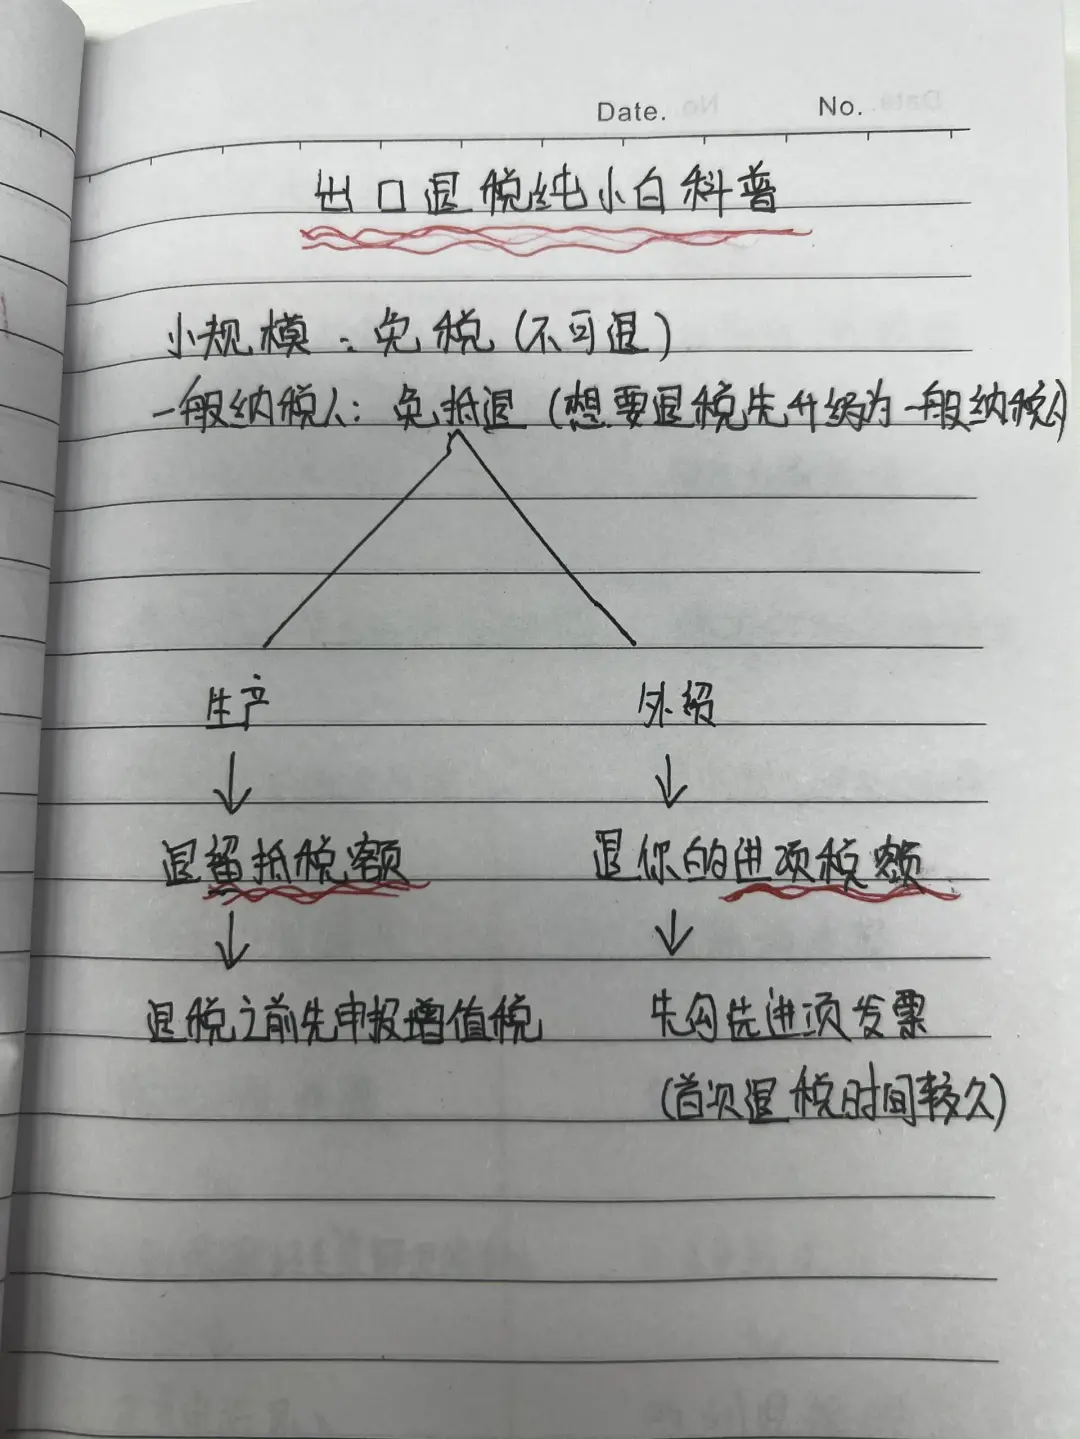 Date. No.
出口退税纯小白科普
小规模：免税（不可退）
一般纳税人：免抵退（想要退税先升级为一般纳税人）
生产 外贸
退留抵税额 退你的进项税额
退税之前先申报增值税 先勾选进项发票
（首次退税时间较久）